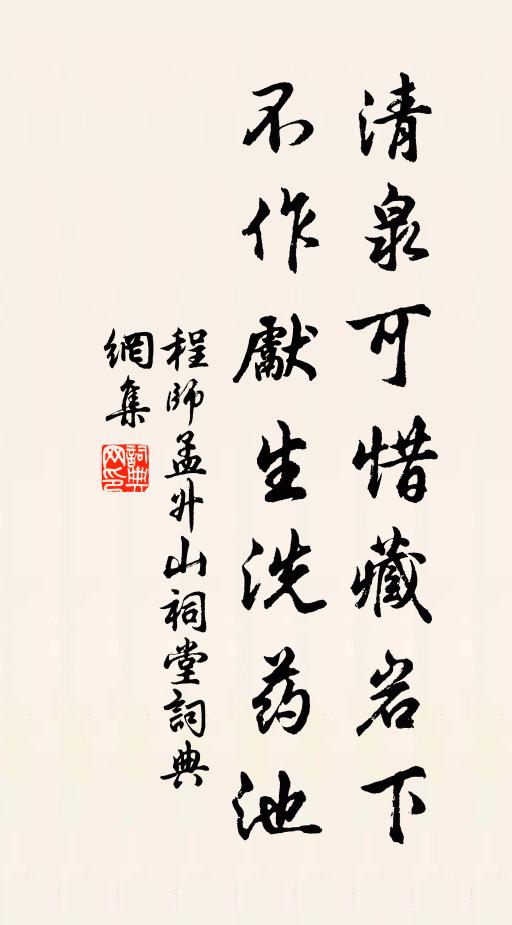 清泉可惜藏岩下
不作獻生洗药池
程師孟升山祠堂詞典
網集
詞典
网印